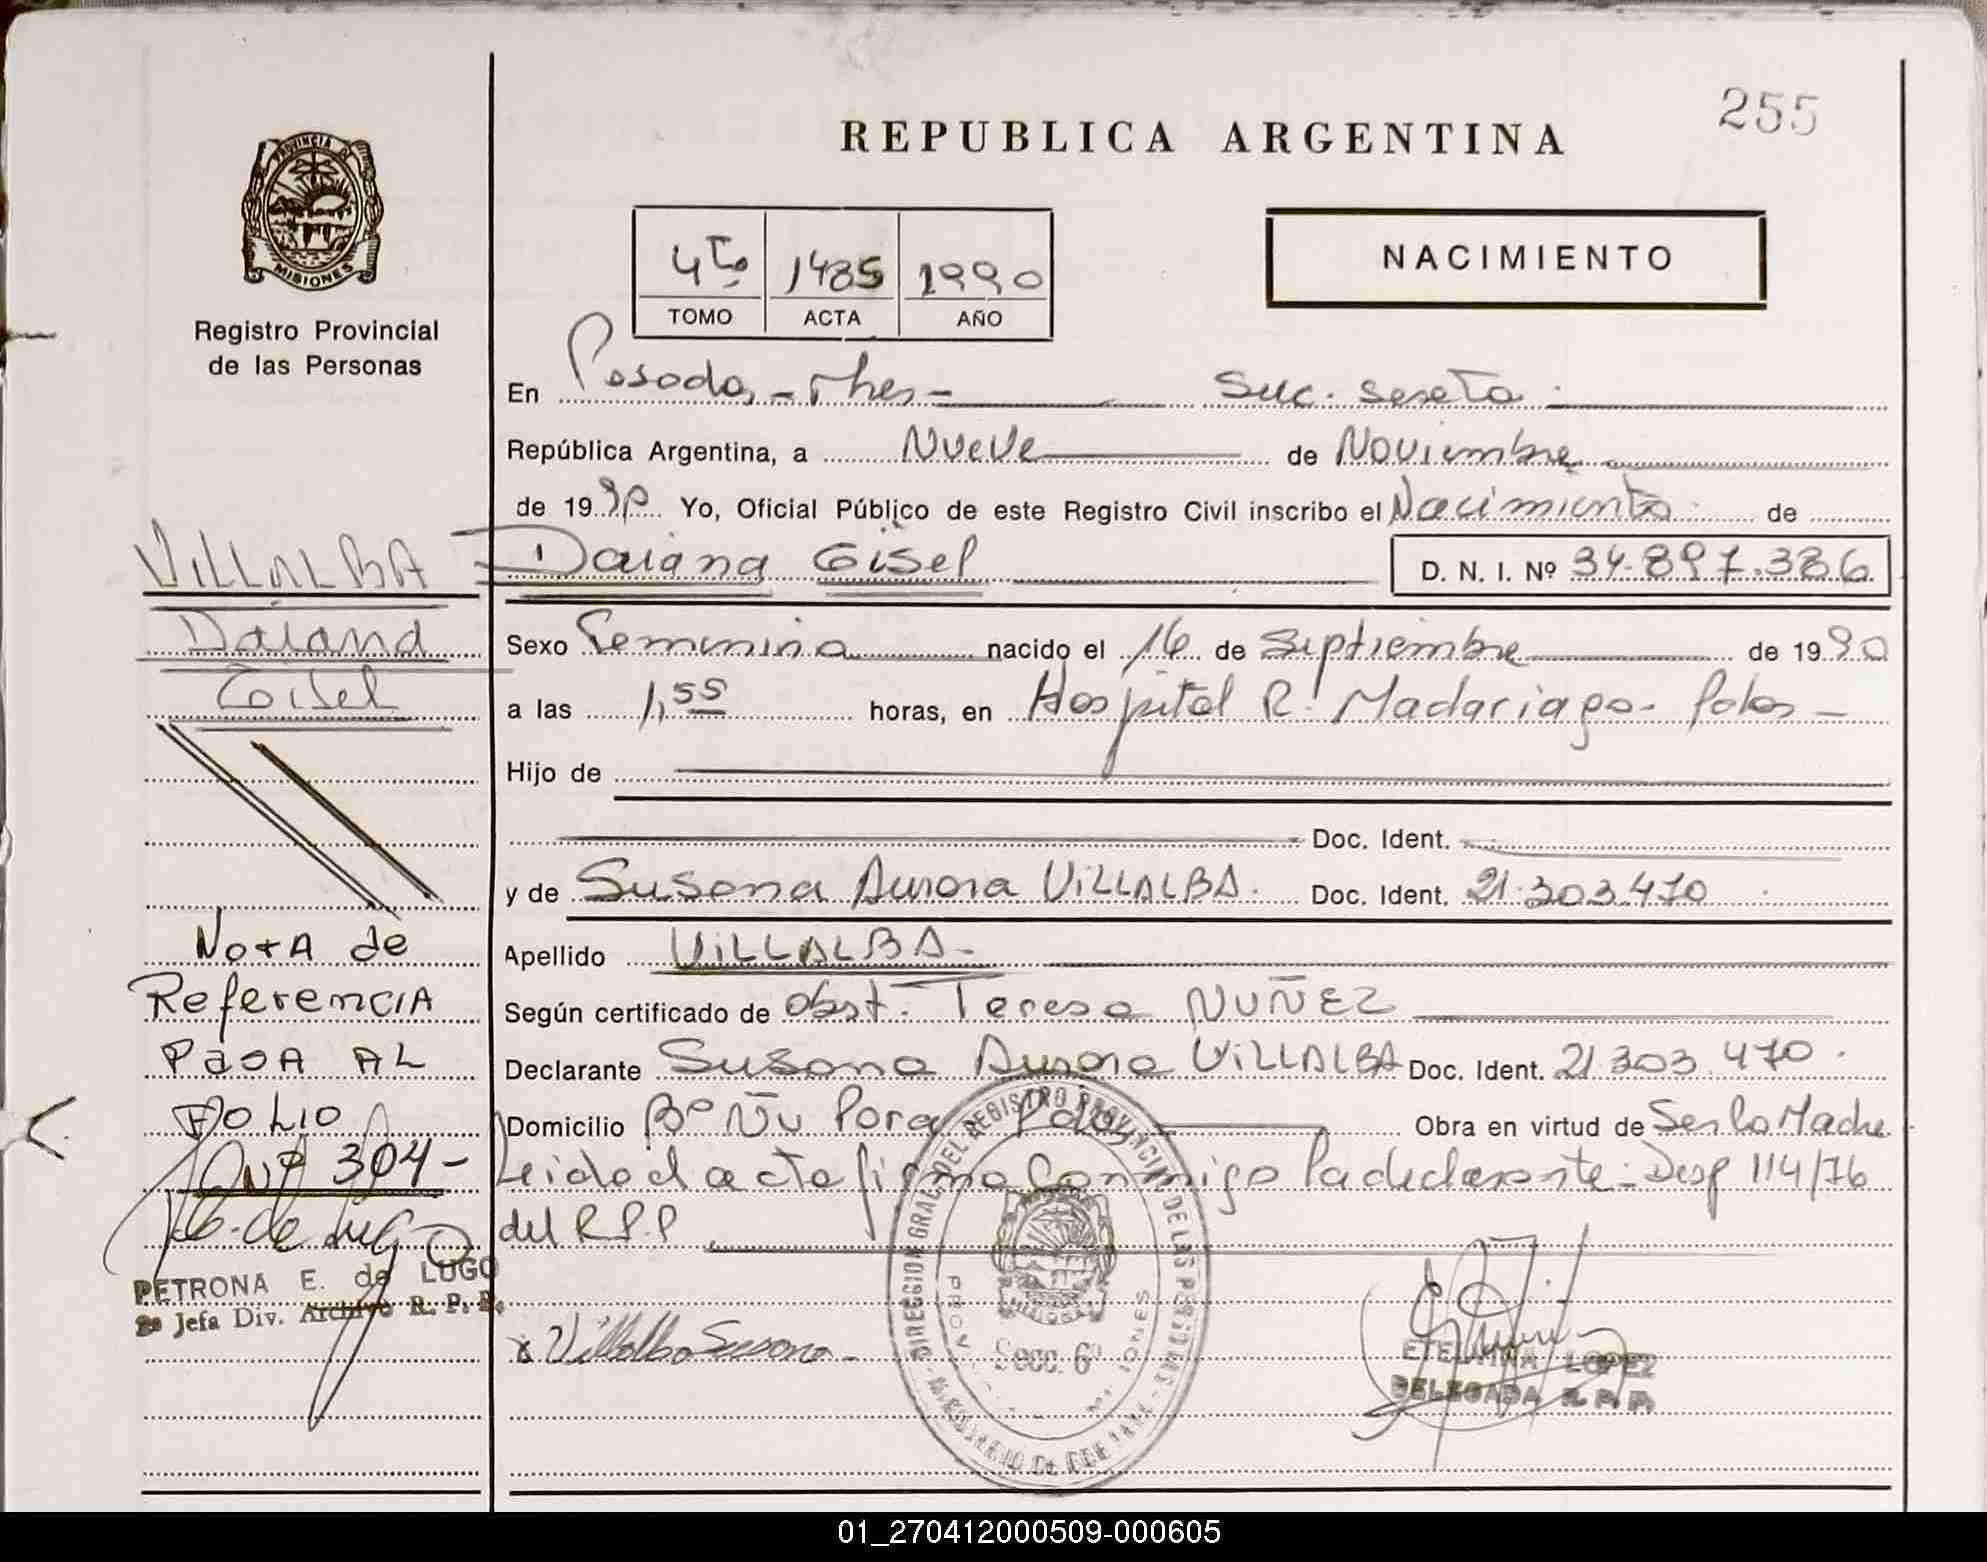 255
REPUBLICA ARGENTINA
PROVINCIA DE
MISIONES
Registro Provincial
de las Personas
NACIMIENTO
4to 1485 1990
TOMO ACTA AÑO
En Posadas - Mnes - Suc. sexta
República Argentina, a Nueve de Noviembre
de 1990 Yo, Oficial Público de este Registro Civil inscribo el Nacimiento de
Daiana Gisel D. N. I. Nº 34.897.386
Sexo Femenino nacido el 16 de Septiembre de 1990
a las 1,55 horas, en Hospital R. Madariaga - Pdas -
Hijo de
Doc. Ident.
y de Susana Aurora VILLALBA. Doc. Ident. 21.303.470
Apellido VILLALBA -
Según certificado de obst. Teresa NUÑEZ
Declarante Susana Aurora VILLALBA Doc. Ident. 21.303.470.
Domicilio Bº Ñu Pora Pdas Obra en virtud de Ser la Madre
Leida el acta firma conmigo la declarante - Disp 114/76
del R.P.P
x Villalba Susana -
DIRECCION GRAL. DEL REGISTRO PROVINCIAL DE LAS PERSONAS
Secc. 6ª
ETELVINA LOPEZ
DELEGADA R. P. P.
VILLALBA
Daiana
Gisel
NOTA de
Referencia
PASA AL
FOLIO
Nº 304 -
PETRONA E. de LUGO
Jefa Div. Archivo R. P. P.
01_270412000509-000605